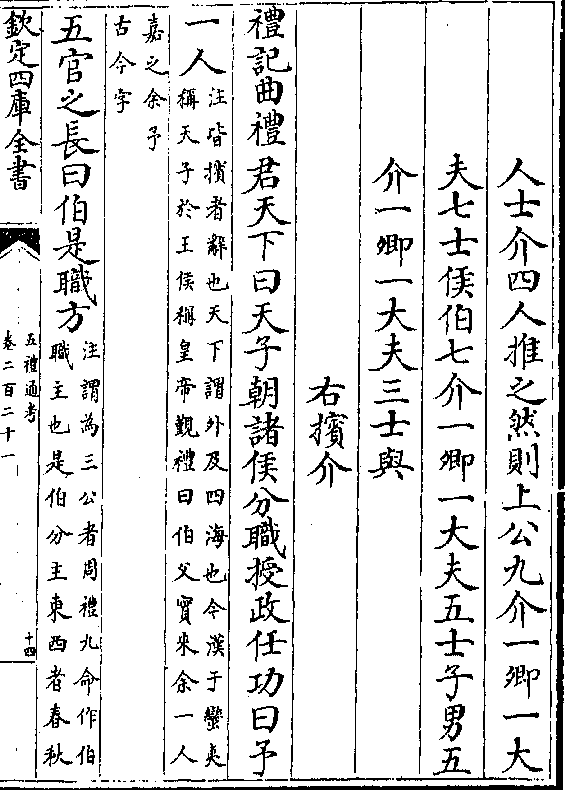 人士介四人推之然則上公九介一卿一大
夫七士侯伯七介一卿一大夫五士子男五
介一卿一大夫三士與
右擯介
禮記曲禮君天下曰天子朝諸侯分職授政任功曰予
一人
注皆擯者辭也天下謂外及四海也今漢于蠻夷
稱天子於王侯稱皇帝觀禮曰伯父實來余一人
嘉之余予
古今字
五官之長曰伯是職方
注謂為三公者周禮九命作伯
職主也是伯分主東西者春秋
欽定四庫全書
五禮通考
卷二百二十一
十四